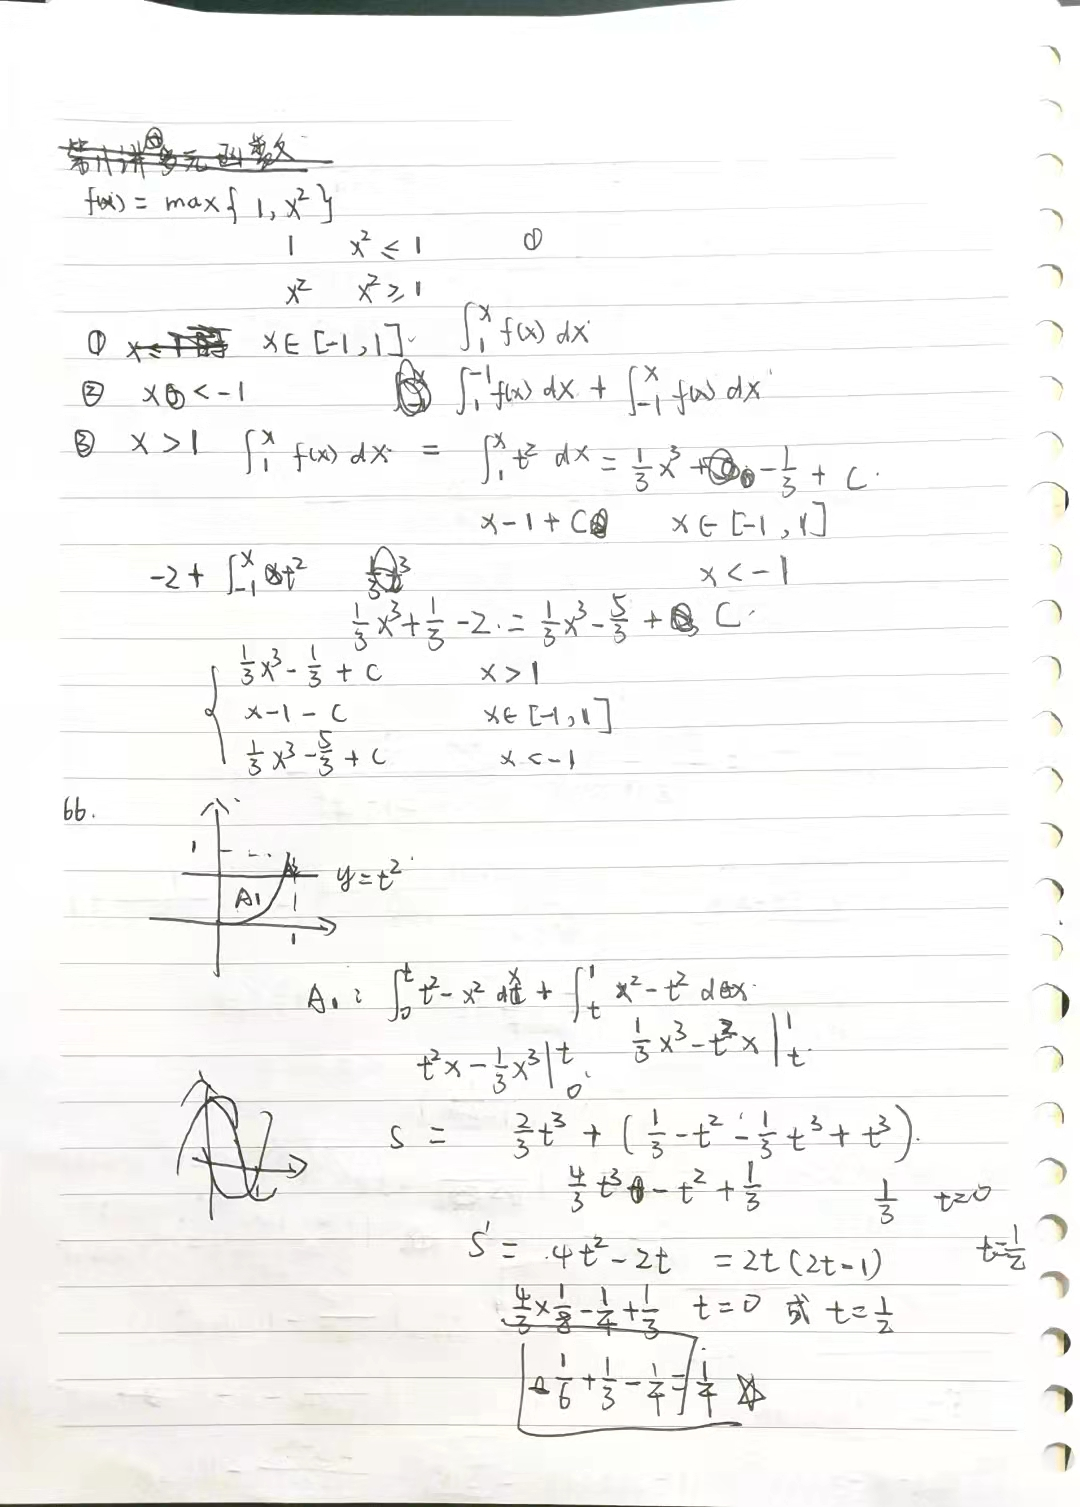 第八讲多元函数
f(x) = max{ 1, x² }
1 x² ≤ 1 ①
x² x² ≥ 1
① x∈ [-1,1] ∫₁ˣ f(x) dx
② x < -1 ∫₁⁻¹ f(x) dx + ∫₋₁ˣ f(x) dx
③ x > 1 ∫₁ˣ f(x) dx = ∫₁ˣ t² dx = 1/3 x³ - 1/3 + C.
x - 1 + C x ∈ [-1, 1]
-2 + ∫₋₁ˣ t² 1/3 t³ x < -1
1/3 x³ + 1/3 - 2 = 1/3 x³ - 5/3 + C
{ 1/3 x³ - 1/3 + C x > 1
x - 1 - C x∈ [-1, 1]
1/3 x³ - 5/3 + C x < -1
66.
1
y = t²
A₁
1
A₁: ∫₀ᵗ t² - x² dx + ∫ₜ¹ x² - t² dx
t²x - 1/3 x³ |₀ᵗ 1/3 x³ - t² x |ₜ¹
S = 2/3 t³ + ( 1/3 - t² - 1/3 t³ + t³ ).
4/3 t³ - t² + 1/3 1/3 t=0
S' = 4t² - 2t = 2t (2t - 1) t=1/2
4/3 × 1/8 - 1/4 + 1/3 t = 0 或 t = 1/2
1/6 + 1/3 - 1/4 = 1/4